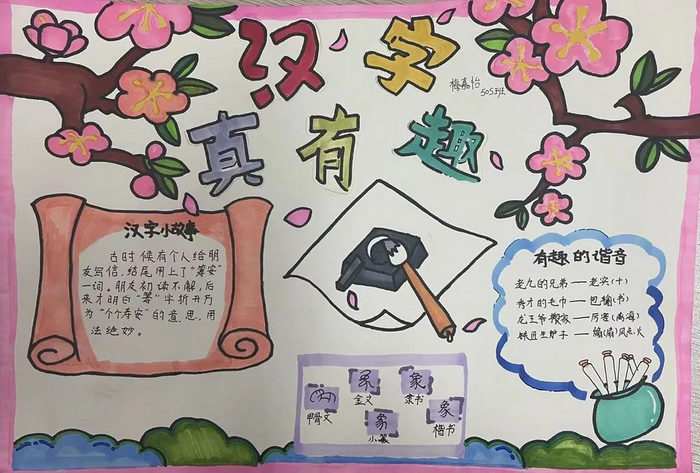 汉字
真有趣
梅嘉怡
505班
汉字小故事
古时候有个人给朋
友写信,结尾用上了“筹安”
一词。朋友初读不解,后
来才明白“筹”字拆开为
为“个个寿安”的意思,用
法绝妙。
有趣的谐音
老九的兄弟——老实(十)
秀才的毛巾——包输(书)
龙王爷搬家——厉害(离海)
妖里生炉子——煽(扇)风点火
甲骨文
象
金文
象
小篆
象
隶书
象
楷书